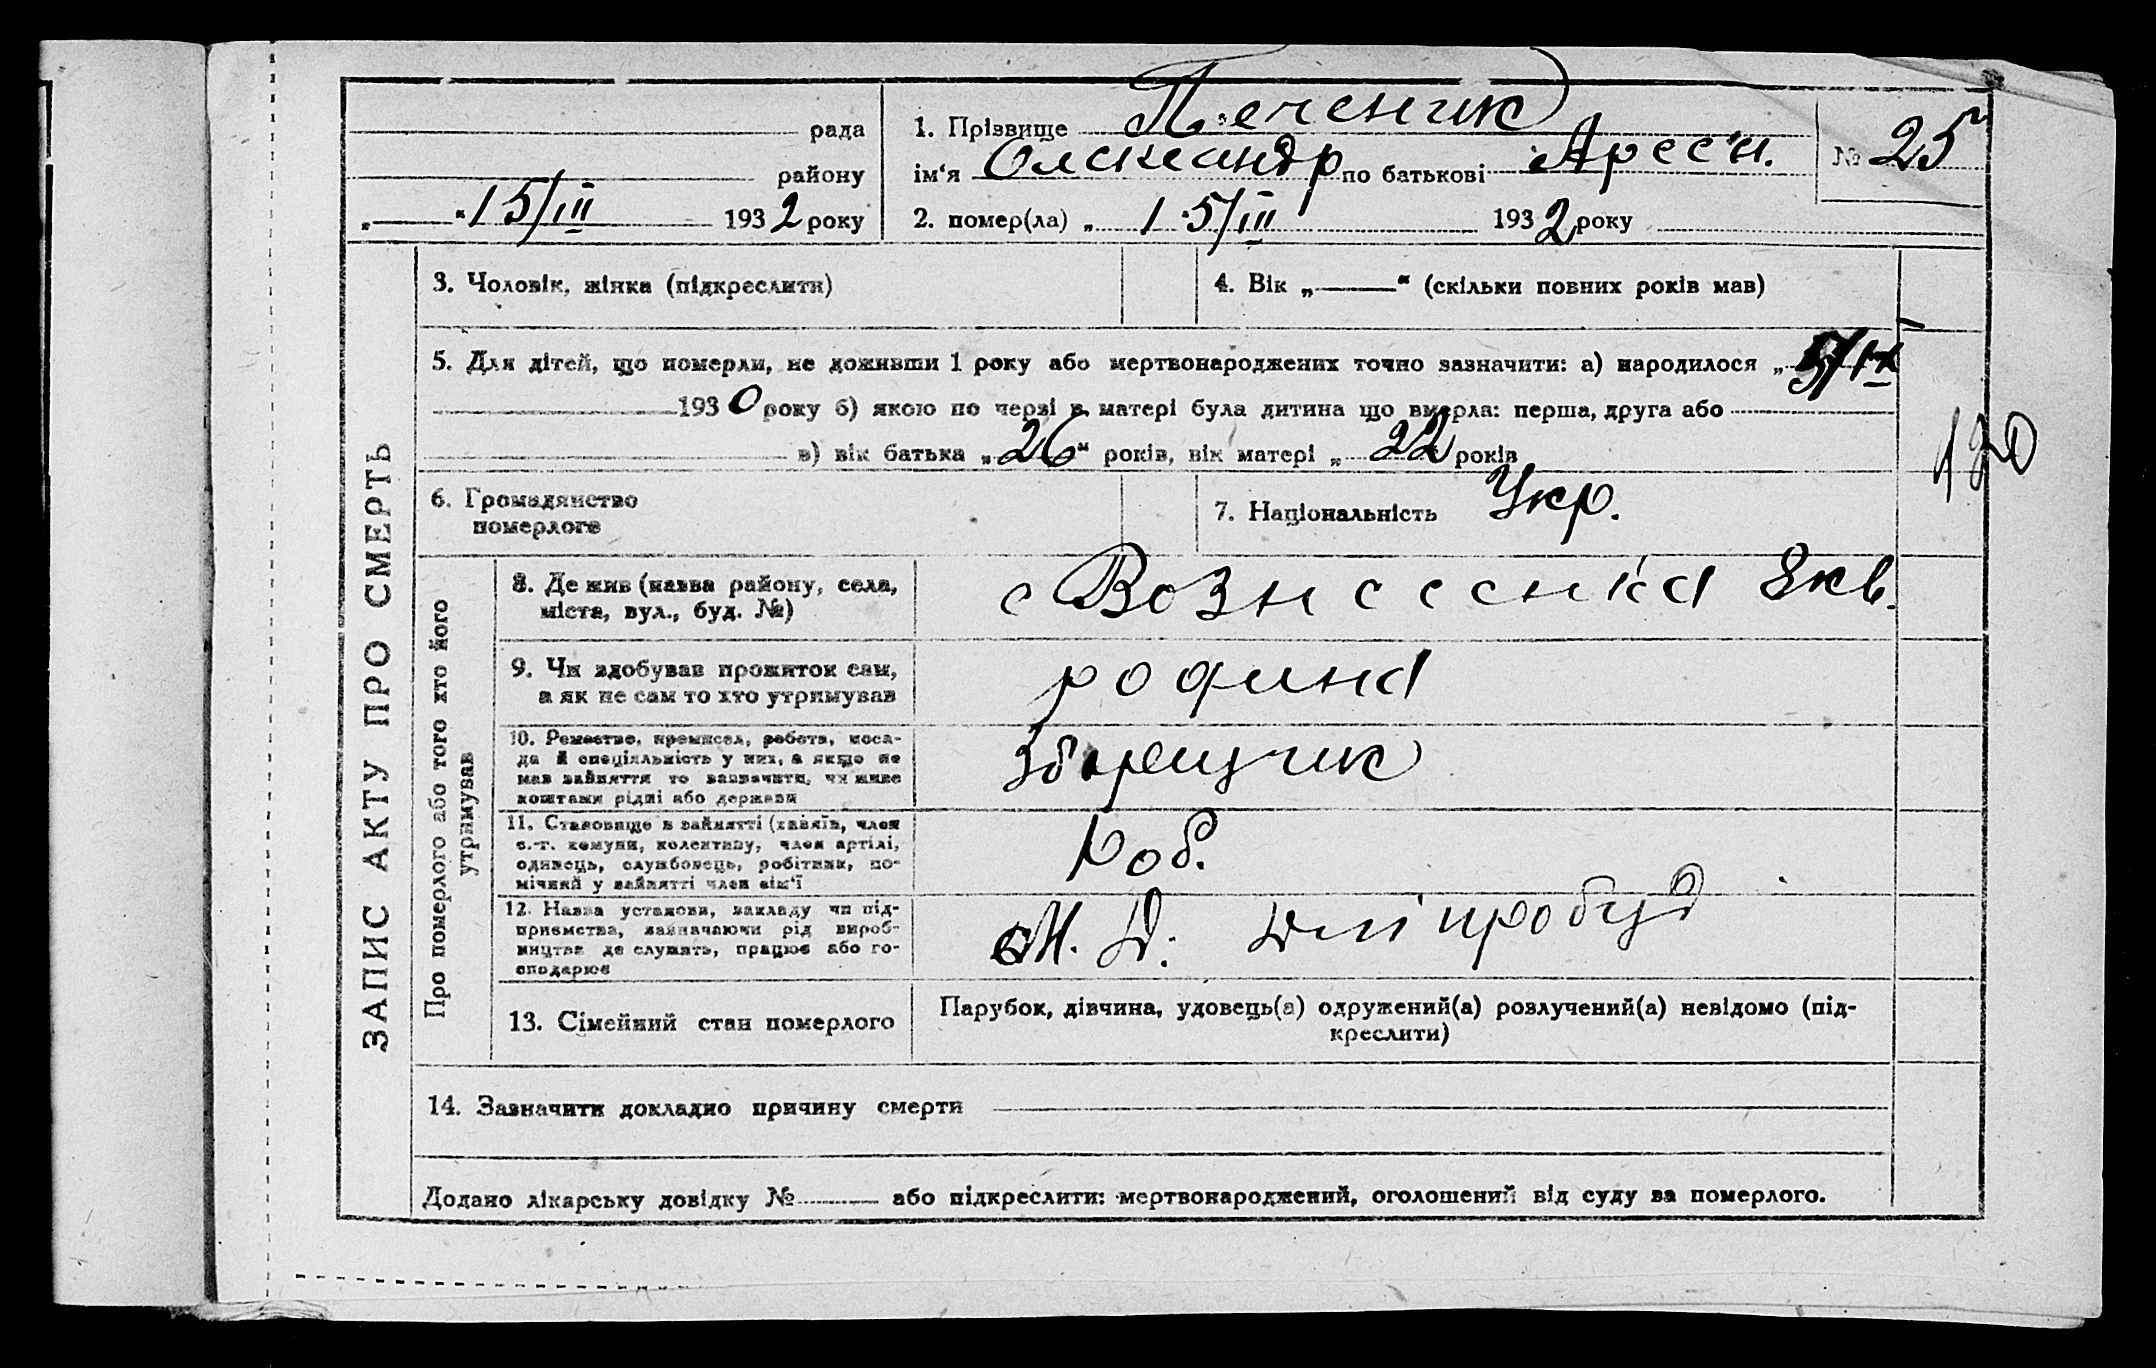 рада
району
„——" 15/III 1932 року
1. Прізвище Печеник
ім'я Олександр по батькові Арсен.
№ 25
2. помер(ла) „ 15/III 1932 року
ЗАПИС АКТУ ПРО СМЕРТЬ
3. Чоловік, жінка (підкреслити)
4. Вік „——" (скільки повних років мав)
5. Для дітей, що померли, не доживши 1 року або мертвонароджених точно зазначити: а) народилося „
1930 року б) якою по черзі в матері була дитина що вмерла: перша, друга або
в) вік батька „26" років, вік матері „ 22 років
6. Громадянство
померлого
7. Національність Укр.
Про померлого або того хто його
утримував
8. Де жив (назва району, села,
міста, вул., буд. №)
с Вознесенка 8 кв.
9. Чи здобував прожиток сам,
а як не сам то хто утримував
родина
10. Ремество, промисел, робота, поса-
да й спеціяльність у них, а якщо не
мав зайняття то зазначити, чи живе
коштами рідні або держави
Зборщик
11. Становище в зайнятті (хазяїн, член
с.-г. комуни, колективу, член артілі,
одинець, службовець, робітник, по-
мічний у зайнятті член сім'ї
Роб.
12. Назва установи, закладу чи під-
приємства, зазначаючи рід вироб-
ництва де служить, працює або го-
сподарює
Дніпробуд
13. Сімейний стан померлого
Парубок, дівчина, удовець(а) одружений(а) розлучений(а) невідомо (під-
креслити)
14. Зазначити докладно причину смерти
Додано лікарську довідку № —— або підкреслити: мертвонароджений, оголошений від суду за померлого.